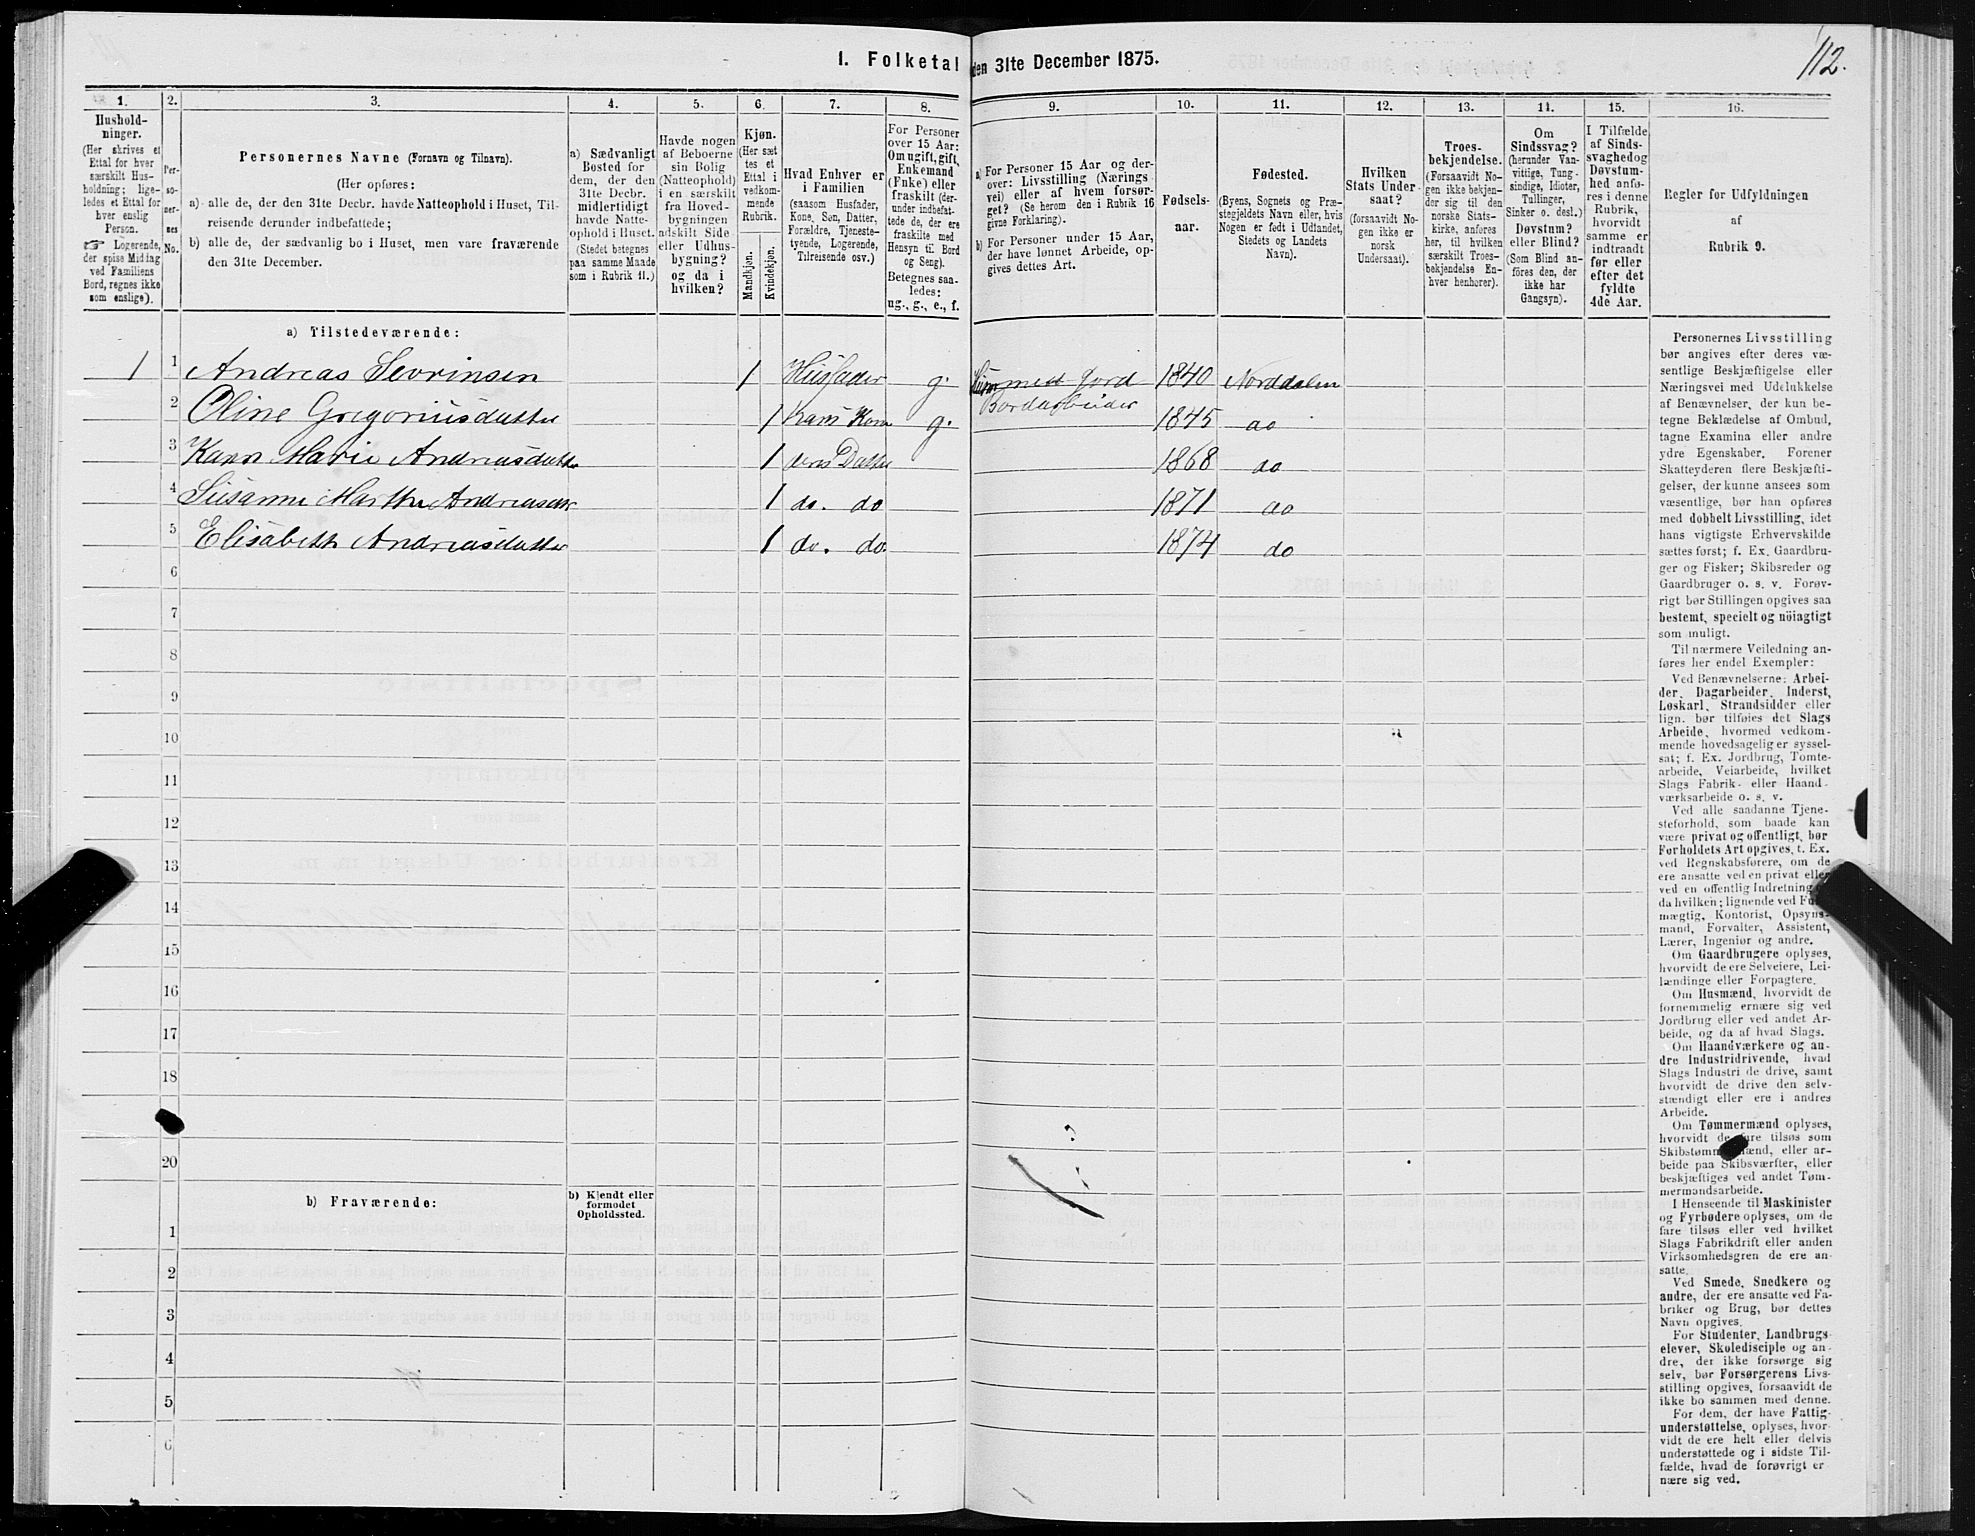 112.
1. Folketal den 31te December 1875.
1. 2. 3. 4. 5. 6. 7. 8. 9. 10. 11. 12. 13. 14. 15. 16.
Hushold-
ninger.
(Her skrives et
Ettal for hver
særskilt Hus-
holdning; lige-
ledes et Ettal for
hver enslig
Person.
☞ Logerende,
der spise Middag
ved Familiens
Bord, regnes ikke
som enslige).
Per-
so-
ner-
nes
No.
Personernes Navne (Fornavn og Tilnavn).
(Her opføres:
a) alle de, der den 31te Decbr. havde Natteophold i Huset, Til-
reisende derunder indbefattede;
b) alle de, der sædvanlig bo i Huset, men vare fraværende
den 31te December.
a) Sædvanligt
Bosted for
dem, der den
31te Decbr.
midlertidigt
havde Natte-
ophold i Huset.
(Stedet betegnes
paa samme Maade
som i Rubrik 11.)
Havde nogen
af Beboerne
sin Bolig
(Natteophold)
i en særskilt
fra Hoved-
bygningen
adskilt Side-
eller Udhus-
bygning?
og da i
hvilken?
Kjøn.
(Her sæt
tes et
Ettal i
vedkom-
mende
Rubrik.
Mandkjøn.
Kvindekjøn.
Hvad Enhver er
i Familien
(saasom Husfader,
Kone, Søn, Datter,
Forældre, Tjeneste-
tyende, Logerende,
Tilreisende osv.)
For Personer
over 15 Aar:
Om ugift, gift,
Enkemand
(Enke) eller
fraskilt (der-
under indbefat-
tede de, der ere
fraskilte med
Hensyn til Bord
og Seng).
Betegnes saa-
ledes:
ug., g., e., f.
a) For Personer 15 Aar og der-
over: Livsstilling (Nærings-
vei) eller af hvem forsør-
get? (Se herom den i Rubrik 16
givne Forklaring).
b) For Personer under 15 Aar,
der have lønnet Arbeide, op-
gives dettes Art.
Fødsels-
aar.
Fødested.
(Byens, Sognets og Præ-
stegjeldets Navn eller, hvis
Nogen er født i Udlandet,
Stedets og Landets
Navn).
Hvilken
Stats Under-
saat?
(forsaavidt No-
gen ikke er
norsk
Undersaat).
Troes-
bekjendelse.
(Forsaavidt No-
gen ikke bekjen-
der sig til den
norske Stats-
kirke, anføres
her, til hvilken
særskilt Troes-
bekjendelse En-
hver henhører).
Om
Sindssvag?
(herunder Van-
vittige, Tung-
sindige, Idioter,
Tullinger,
Sinker o. desl.)
Døvstum?
eller Blind?
(Som Blind an-
føres den, der
ikke har
Gangsyn).
I Tilfælde
af Sinds-
svaghed og
Døvstum-
hed anfø-
res i denne
Rubrik,
hvorvidt
samme er
indtraadt
før eller
efter det
fyldte
4de Aar.
Regler for Udfyldningen
af
Rubrik 9.
a) Tilstedeværende:
1 1 Andreas Sevrinsen 1 Husfader g. med Jord 1840 Norddalen
Bordarbeider
2 Oline Gregoriusdatter 1 hans Kone g. 1845 do
3 Karn Marie Andreasdatter 1 deres Datter 1868 do
4 Susanne Marthe Andreasdtr 1 do. do 1871 do
5 Elisabeth Andreasdatter 1 do. do 1874 do
6
7
8
9
10
11
12
13
14
15
16
17
18
20
b) Fraværende:
b) Kjendt eller
formodet
Opholdssted.
1
2
3
4
5
6
Personernes Livsstilling
bør angives efter deres væ-
sentlige Beskjæftigelse eller
Næringsvei med Udelukkelse
af Benævnelser, der kun be-
tegne Beklædelse af Ombud,
tagne Examina eller andre
ydre Egenskaber. Forener
Skatteyderen flere Beskjæfti-
gelser, der kunne ansees som
væsentlige, bør han opføres
med dobbelt Livsstilling, idet
hans vigtigste Erhvervskilde
sættes først; f. Ex. Gaardbru-
ger og Fisker; Skibsreder og
Gaardbruger o. s. v. Forøv-
rigt bør Stillingen opgives saa
bestemt, specielt og nöiagtigt
som muligt.
Til nærmere Veiledning an-
føres her endel Exempler:
Ved Benævnelserne: Arbei-
der, Dagarbeider, Inderst,
Løskarl, Strandsidder eller
lign. bør tilføies det Slags
Arbeide, hvormed vedkom-
mende hovedsagelig er syssel-
sat; f. Ex. Jordbrug, Tomte-
arbeide, Veiarbeide, hvilket
Slags Fabrik- eller Haand-
værksarbeide o. s. v.
Ved alle saadanne Tjene-
steforhold, som baade kan
være privat og offentligt, bør
Forholdets Art opgives, f. Ex.
ved Regnskabsførere, om de
ere ansatte ved en privat eller
ved en offentlig Indretning
da hvilken; lignende ved Fuld-
mægtig, Kontorist, Opsyns-
mand, Forvalter, Assistent,
Lærer, Ingeniør og andre.
Om Gaardbrugere oplyses,
hvorvidt de ere Selveiere, Lei-
lændinge eller Forpagtere.
Om Husmænd, hvorvidt de
fornemmelig ernære sig ved
Jordbrug eller ved andet Ar-
beide, og da af hvad Slags.
Om Haandværkere og an-
dre Industridrivende, hvad
Slags Industri de drive, samt
hvorvidt de drive den selv-
stændigt eller ere i andres
Arbeide.
Om Tømmermænd oplyses,
hvorvidt de fare tilsøs som
Skibstømmermænd, eller ar-
beide paa Skibsværfter, eller
beskjæftiges ved andet Tøm-
mermandsarbeide.
I Henseende til Maskinister
og Fyrbødere oplyses, om de
fare tilsøs eller ved hvilket
Slags Fabrikdrift eller anden
Virksomhedsgren de ere an-
satte.
Ved Smede, Snedkere og
andre, der ere ansatte ved Fa-
briker og Brug, bør dettes
Navn opgives.
For Studenter, Landbrugs-
elever, Skoledisciple og an-
dre, der ikke forsørge sig
selv, bør Forsørgerens Livs-
stilling opgives, forsaavidt de
ikke bo sammen med denne.
For dem, der have Fattig-
understøttelse, oplyses, hvor-
vidt de ere helt eller delvis
understøttede og i sidste Til-
fælde, hvad de forøvrigt er-
nære sig ved.